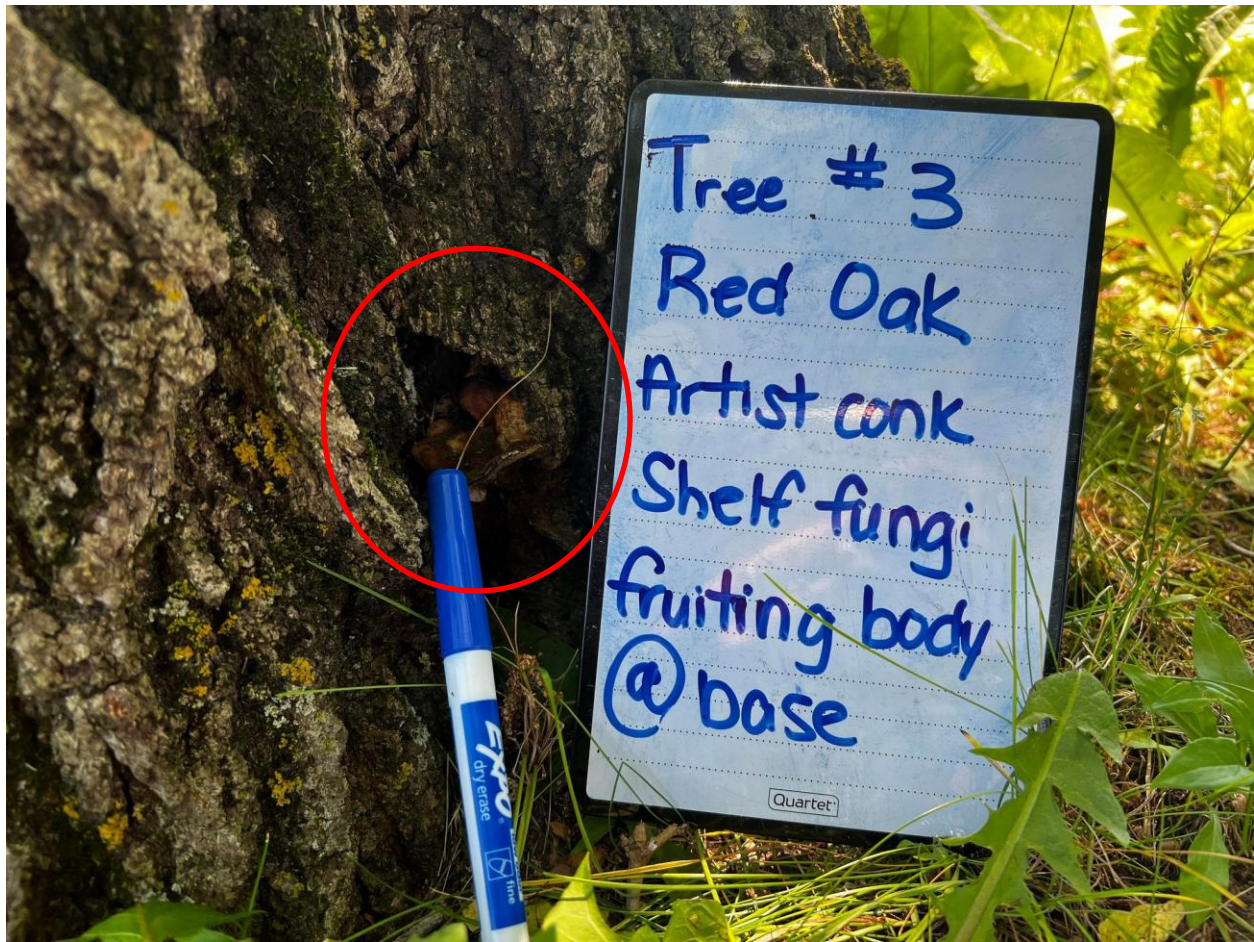 Tree #3
Red Oak
Artist conk
Shelf fungi
fruiting body
@base
Quartet
EXPO
dry erase
fine